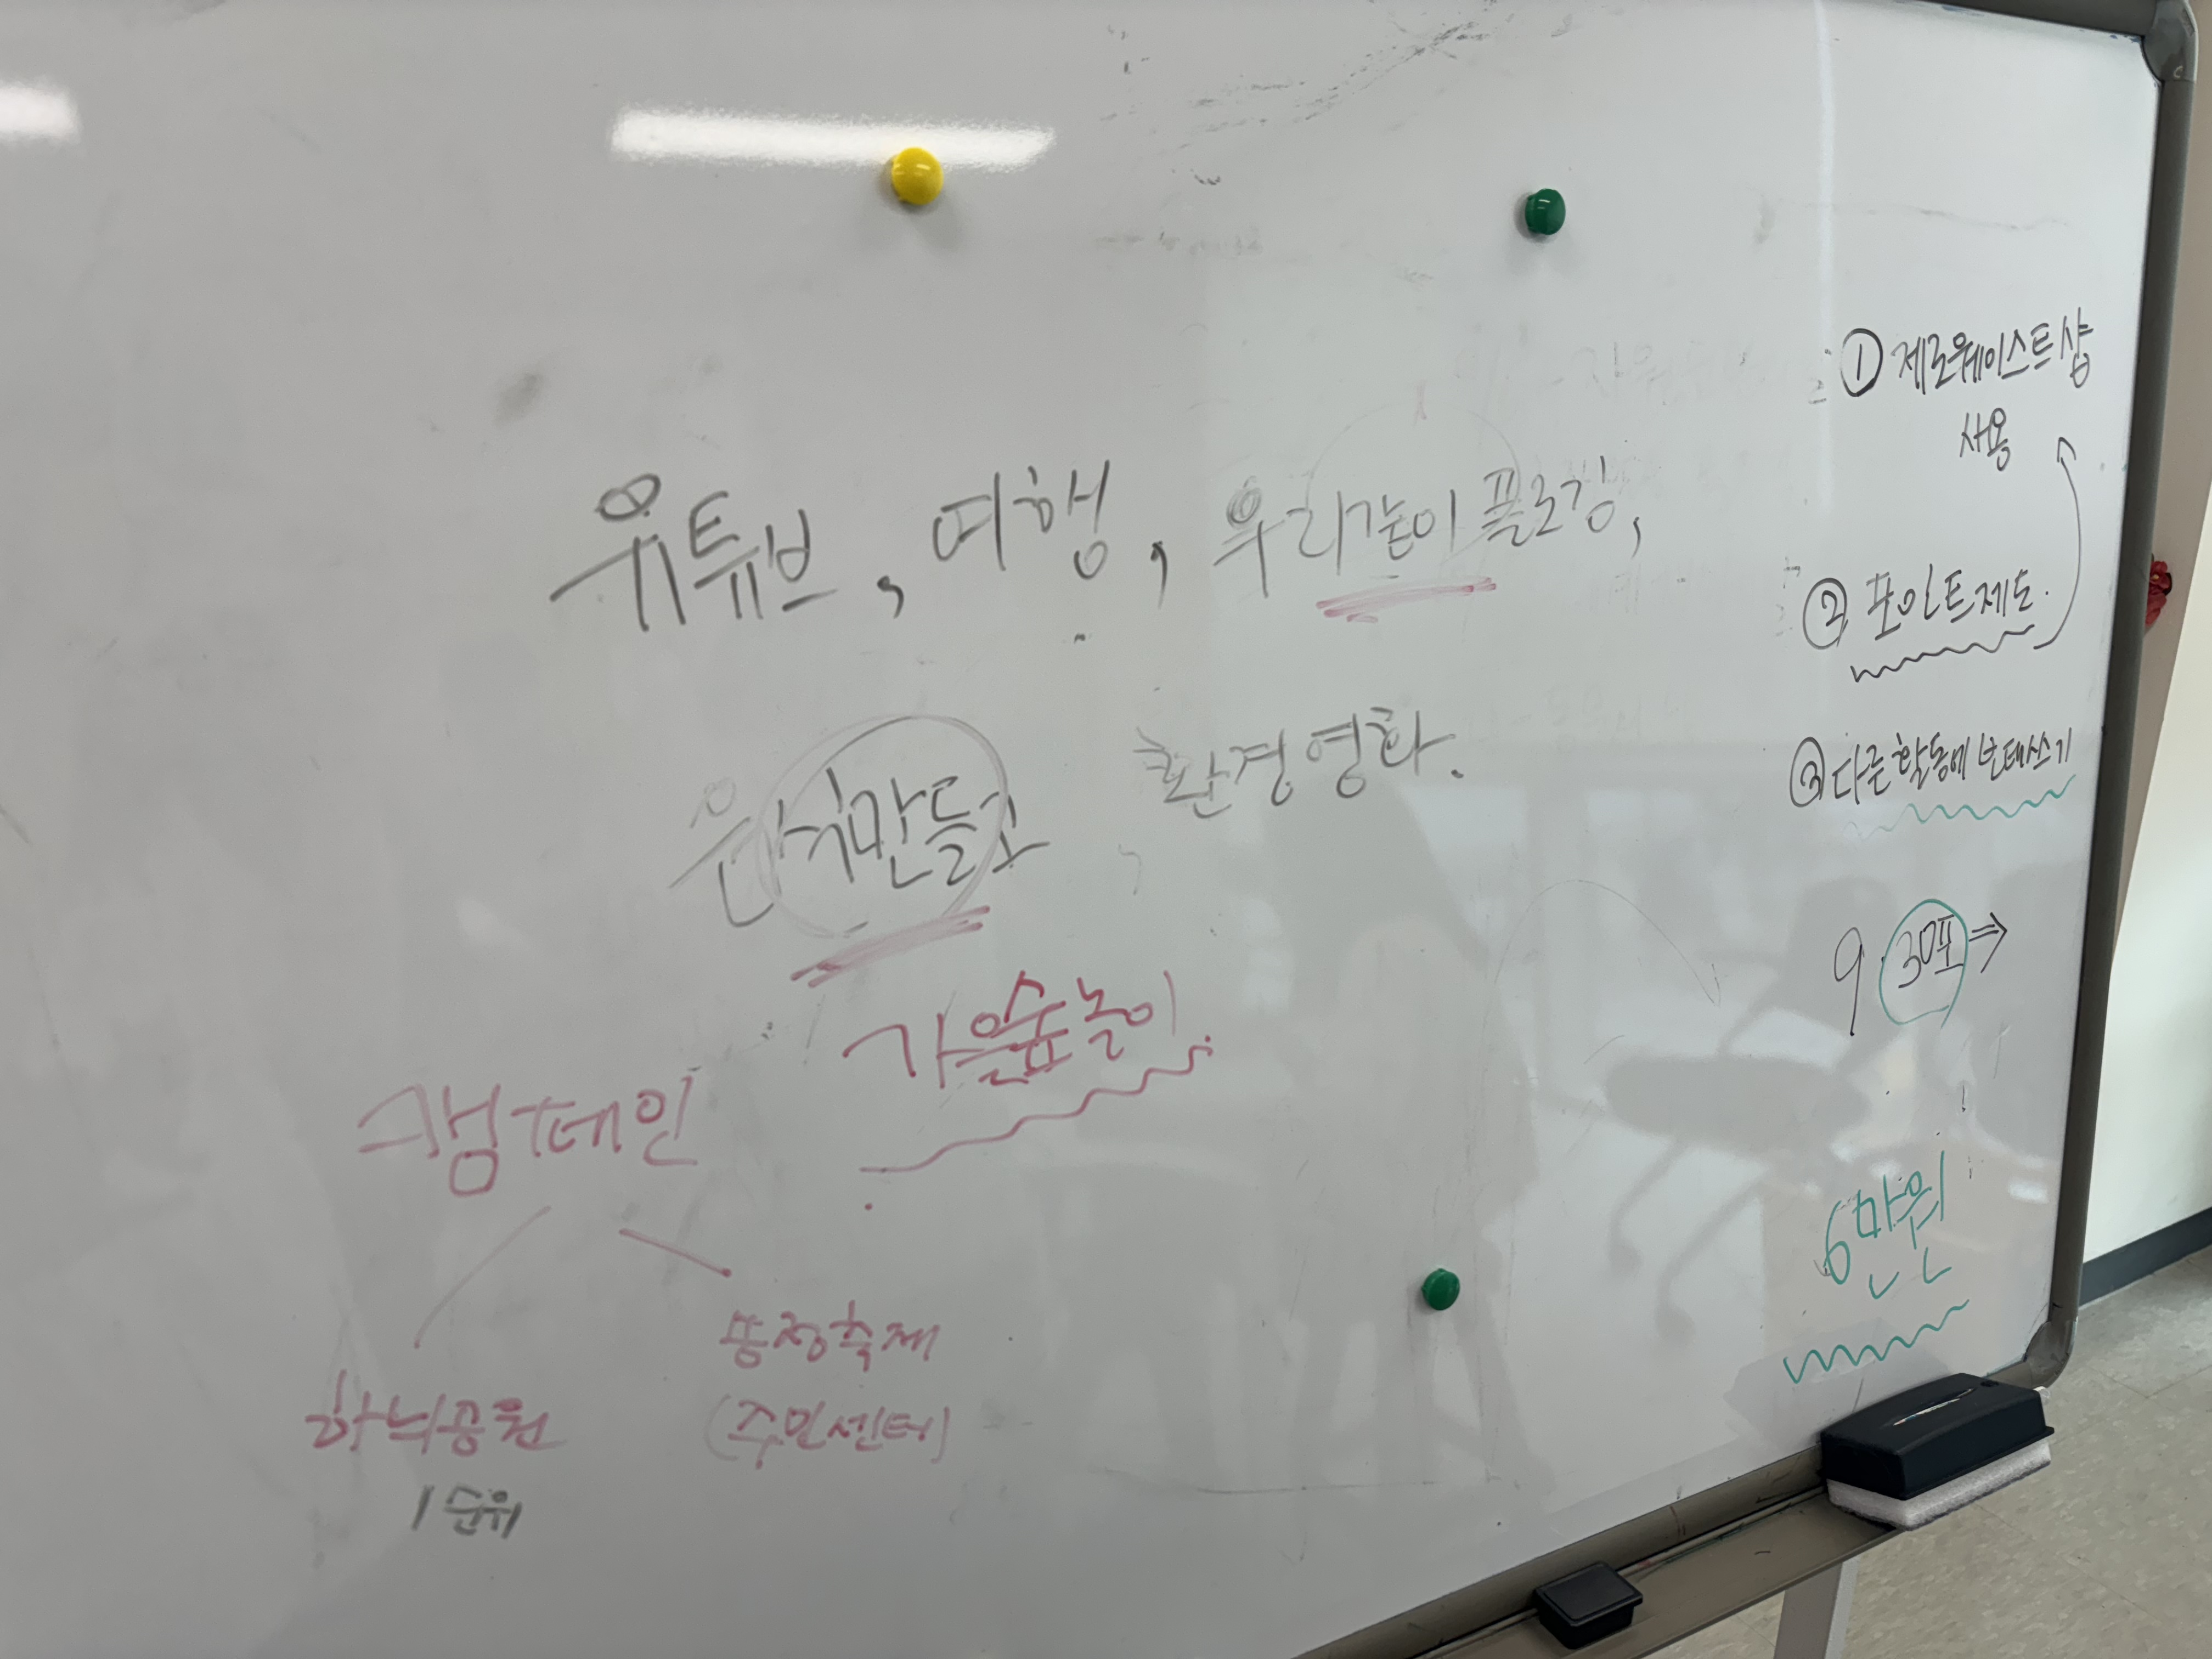 유튜브, 여행, 우리같이 플로깅,
음식만들고 환경영화.
가을숲놀이.
캠페인
하늬공원
1순위
뚱장축제
(주민센터)
① 제로웨이스트샵
사용
② 포인트제도.
③ 다른 활동에 보태쓰기
9 30포 ⇒
6만원